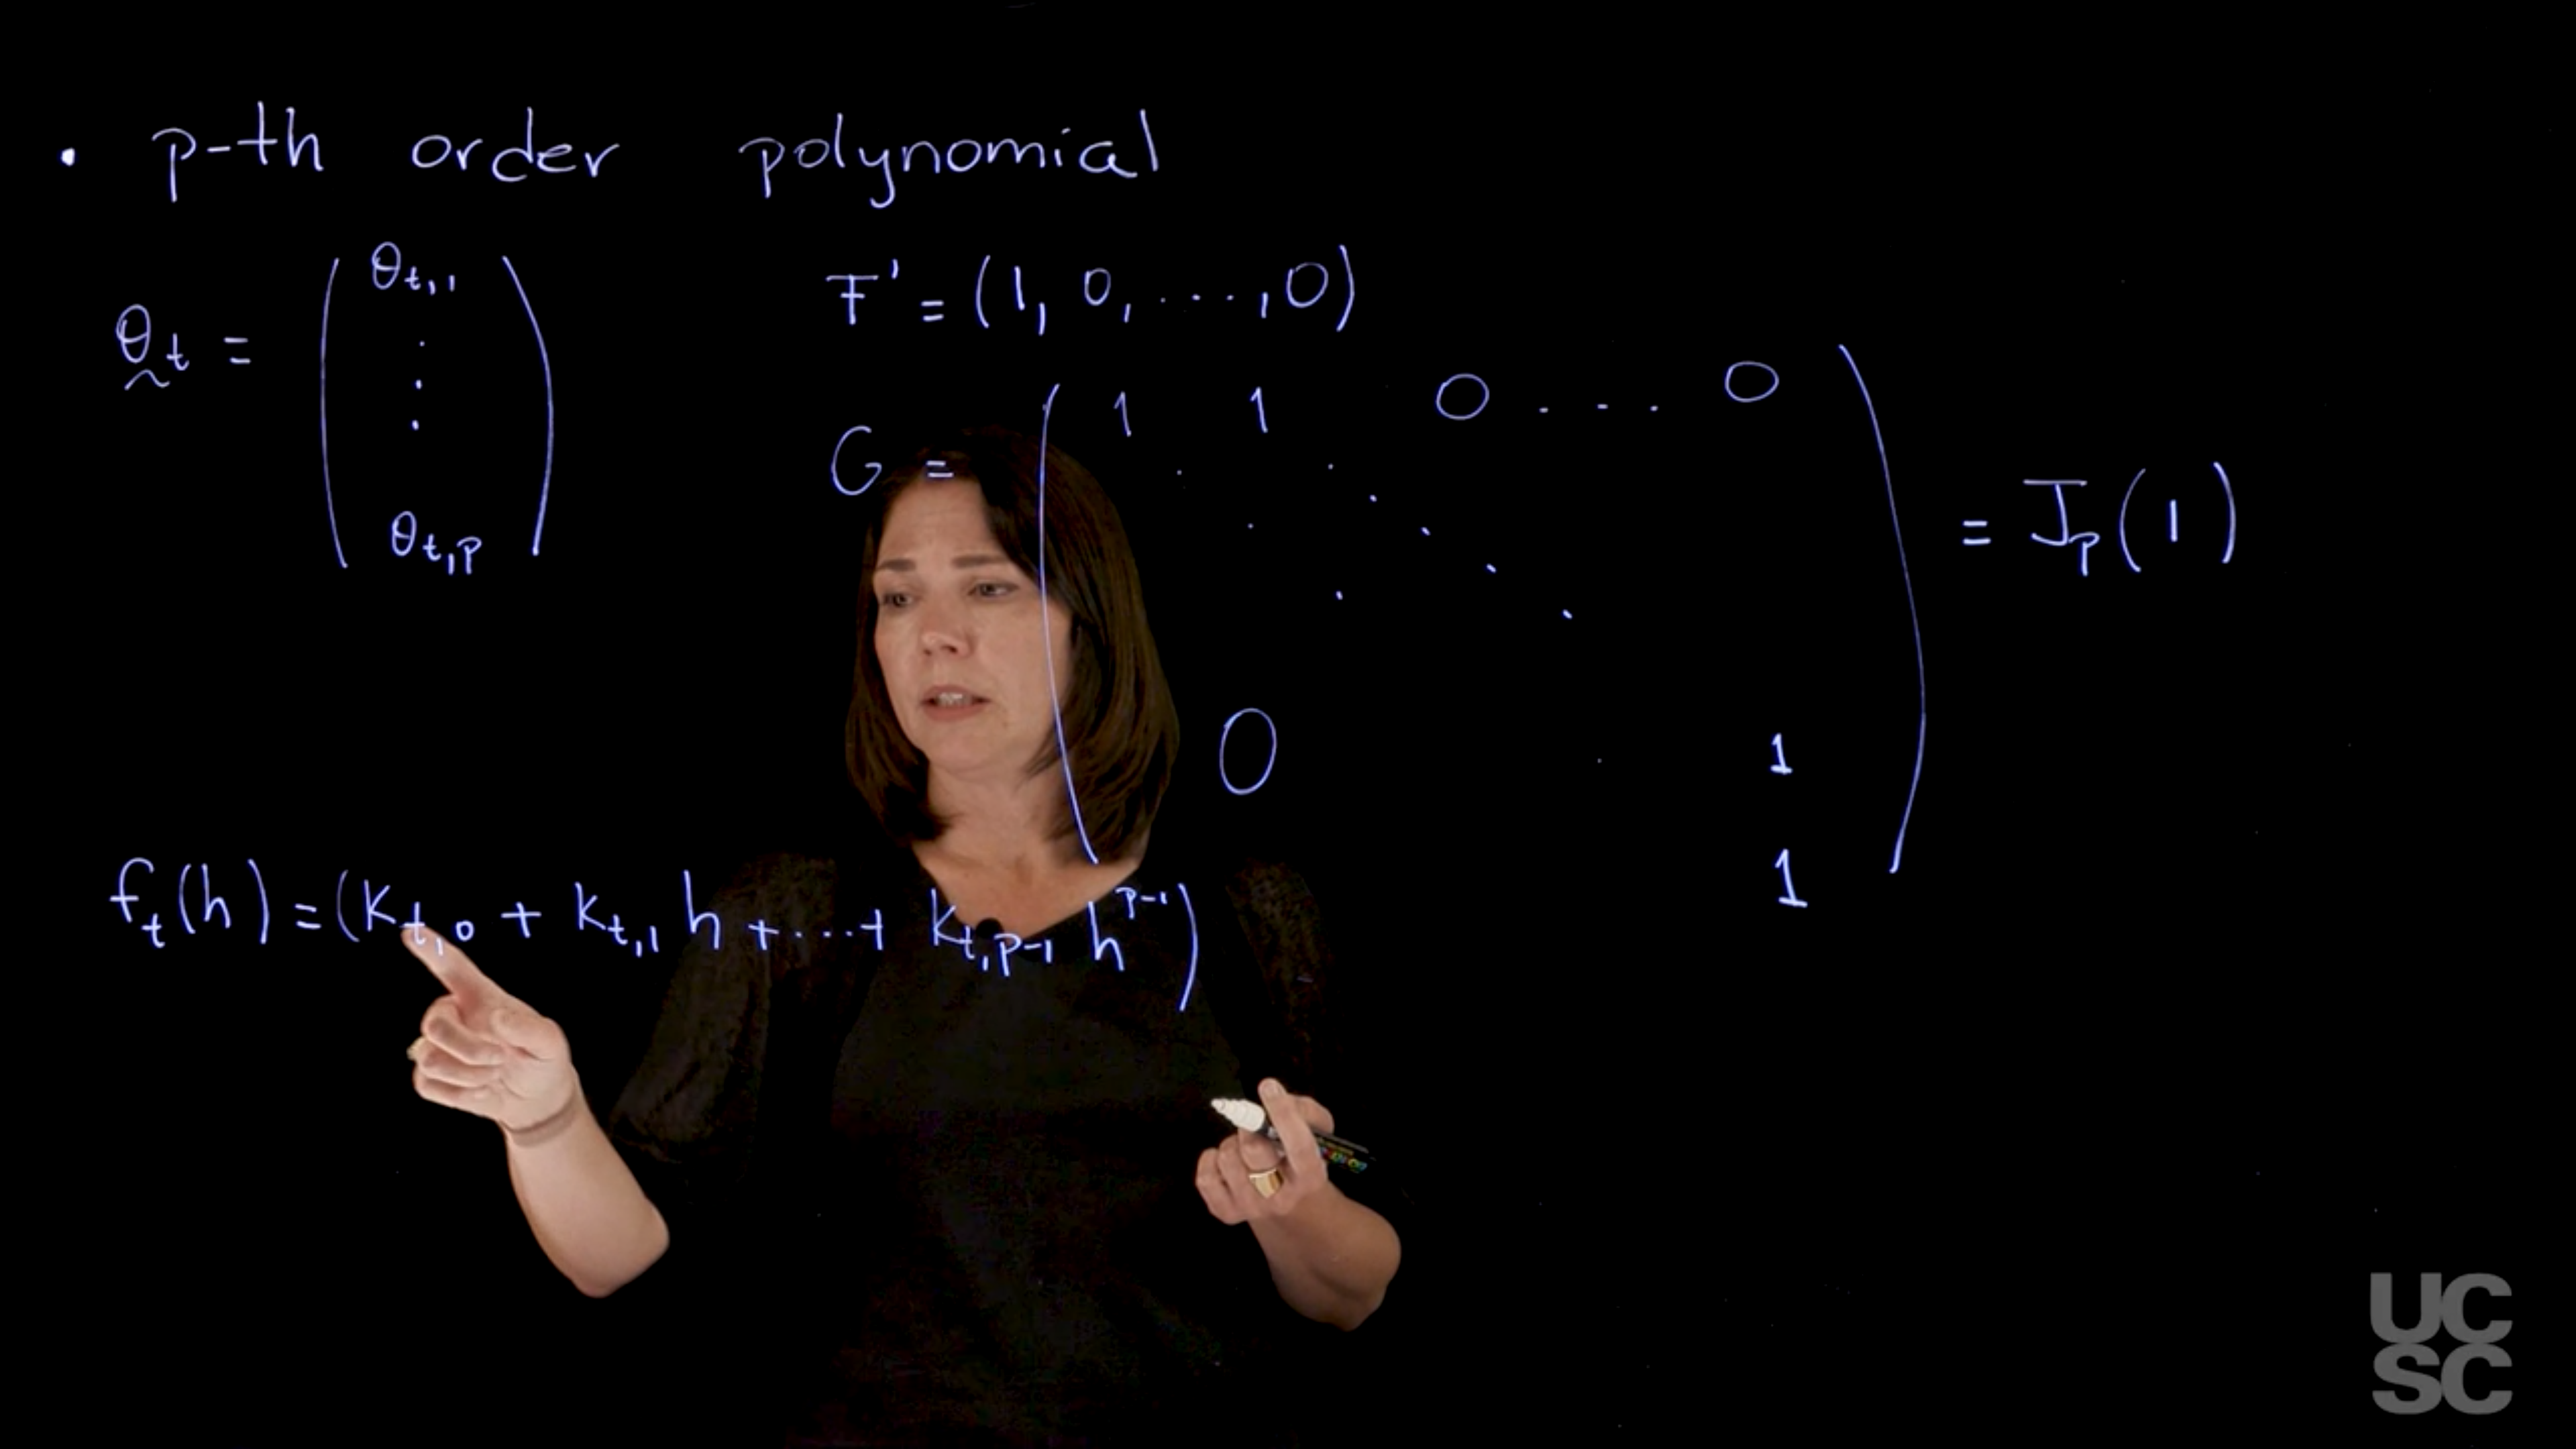 • p-th order polynomial
θ_t = ( θ_{t,1} ⋮ θ_{t,p} )
F' = (1, 0, ..., 0)
G = ( 1 1 0 ... 0
0 1
1 ) = J_p(1)
f_t(h) = (k_{t,0} + k_{t,1} h + ... + k_{t,p-1} h^{p-1})
UC
SC